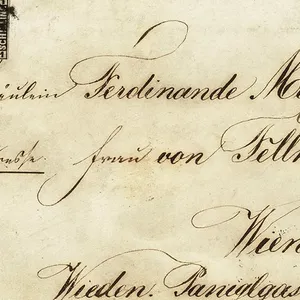 äulein Ferdinande M
esse. frau von Fell
Wien
Wieden. Paniglgas